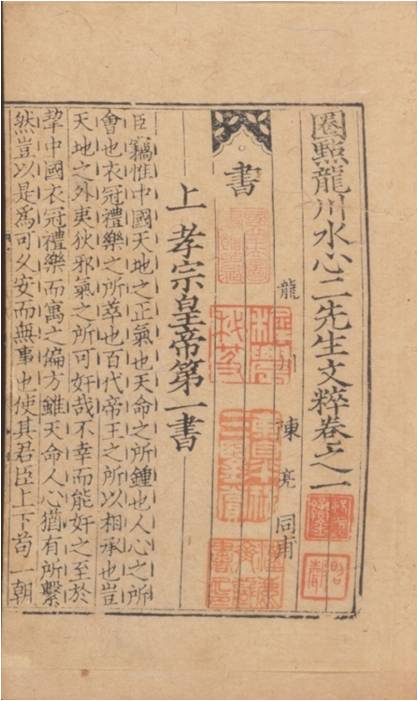 圈點龍川水心二先生文粹卷之一
龍川 陳亮 同甫
書
上孝宗皇帝第一書
臣竊惟中國天地之正氣也天命之所鍾也人心之所
會也衣冠禮樂之所萃也百代帝王之所以相承也豈
天地之外夷狄邪氣之所可奸哉不幸而能奸之至於
挈中國衣冠禮樂而寓之偏方雖天命人心猶有所繫
然豈以是為可久安而無事也使其君臣上下苟一朝